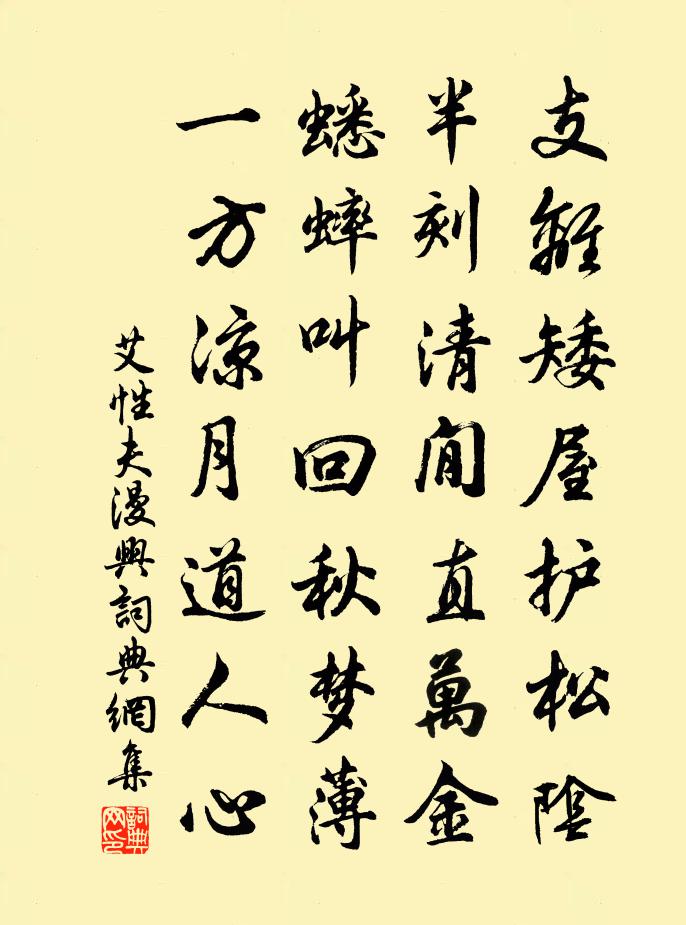 支離矮屋护松陰
半刻清閒直萬金
蟋蟀叫回秋梦薄
一方凉月道人心
艾性夫漫興詞典網集
詞典网印